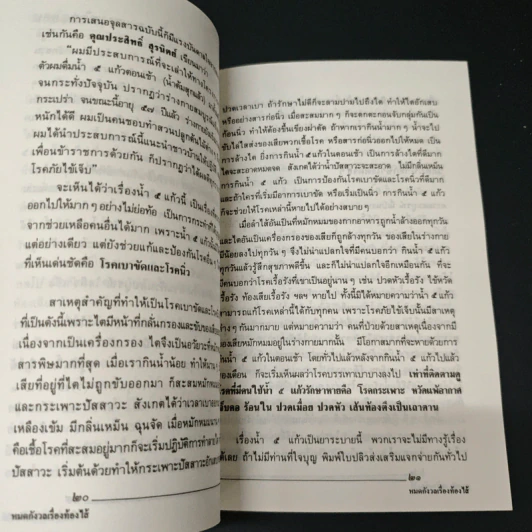 การเสนอจุดสารฉบับนี้ก็มีแรงบันดาลใจ
เช่นกันคือ คุณประสิทธิ์ สุรนิตส์ เขียนมาว่า
"ผมมีประสบการณ์ที่จะเล่าให้ท่าน
ตัวผมดื่มน้ำ ๕ แก้วตอนเช้า (น้ำต้มสุกแล้ว)
จนกระทั่งปัจจุบัน ปรากฏว่าร่างกาย
กระเปร่า จนขณะนี้อายุ ๕๗ ปีแล้ว
หนักได้ดี ผมเป็นคนชอบทำสวนปลูกต้นไม้
ผมได้นำประสบการณ์นี้แนะนำชาวบ้าน
เพื่อนข้าราชการด้วยกัน ก็ปรากฏว่าได้ผลดี
โรคภัยไข้เจ็บ"
จะเห็นได้ว่าเรื่องน้ำ ๕ แก้วนี้ เป็นเรื่อง
ออกไปให้มาก ๆ อย่างไม่ย่อท้อ เป็นการกระทำ
จากช่วยเหลือคนอื่นได้มาก เพราะน้ำ ๕ แก้ว
แต่อย่างเดียว แต่ยังช่วยแก้และป้องกันโรคอื่น
ที่เห็นเด่นชัดคือ โรคเบาขัดและโรคนิ่ว
สาเหตุสำคัญที่ทำให้เป็นโรคเบาขัดและโรค
ที่เป็นดังนี้เพราะไตมีหน้าที่กลั่นกรองและขับของเสีย
เนื่องจากเป็นเครื่องกรอง ไตจึงเป็นอวัยวะที่
สารพิษมากที่สุด เมื่อเรากินน้ำน้อย ทำให้
เสียที่อยู่ที่ไตไม่ถูกขับออกมา ก็สะสมหมักหมม
และกระเพาะปัสสาวะ สังเกตได้ว่าเวลาเบา
เหลืองเข้ม มีกลิ่นเหม็น ฉุนจัด เมื่อหมักหมม
คือเชื้อโรคที่สะสมอยู่มากก็จะเริ่มปฏิบัติการทำลาย
ปัสสาวะ เริ่มต้นด้วยทำให้กระเพาะปัสสาวะอักเสบ
๒๐
หมดกังวลเรื่องท้องไส้
ปวดเวลาเบา ถ้ารักษาไม่ดีก็จะลามปามไปถึงไต ทำให้ไตอักเสบ
หรือสารก่อนิ่ว เมื่อสะสมมาก ๆ ก็จะตกตะกอนจับกลุ่มกันเป็น
ก้อนนิ่ว ทำให้ต้องขึ้นเขียงผ่าตัด ถ้าหากเรากินน้ำมาก ๆ น้ำจะไป
ขับไล่ไสส่งของเสียพวกเชื้อโรค หรือสารก่อนิ่วออกไปให้หมด เป็น
การล้างไต ยิ่งการกินน้ำ ๕ แก้วในตอนเช้า เป็นการล้างไตที่ดีมาก
ไตจะสะอาดหมดจด สังเกตได้ว่าน้ำปัสสาวะจะสะอาด ไม่มีกลิ่นเหม็น
การกินน้ำ ๕ แก้ว เป็นการป้องกันโรคเบาขัดและโรคนิ่วที่ดีมาก
และถ้าใครที่เริ่มมีอาการเบาขัด หรือเริ่มเป็นนิ่ว การกินน้ำ ๕ แก้ว
ก็จะช่วยให้โรคเหล่านี้หายไปได้อย่างสบาย ๆ
เมื่อลำไส้อันเป็นที่หมักหมมของกากอาหารถูกน้ำล้างออกทุกวัน
และไตอันเป็นเครื่องกรองของเสียก็ถูกล้างทุกวัน ของเสียในร่างกาย
น้อยลงไปทุกวัน ๆ จึงไม่น่าแปลกใจที่มีคนบอกว่า กินน้ำ ๕ แก้ว
ทุกวันแล้วรู้สึกสุขภาพดีขึ้น และก็ไม่น่าแปลกใจอีกเหมือนกัน ที่จะ
มีคนบอกว่าโรคเรื้อรังที่เขาเป็นอยู่นาน ๆ เช่น ปวดหัวเรื้อรัง ไข้หวัด
เรื้อรัง ท้องเสียเรื้อรัง ฯลฯ หายไป ทั้งนี้มิได้หมายความว่าน้ำ ๕ แก้ว
สามารถแก้โรคเหล่านี้ได้กับทุกคน เพราะโรคภัยไข้เจ็บนั้นมีสาเหตุ
ต่าง ๆ กันมากมาย แต่หมายความว่า คนที่ป่วยด้วยสาเหตุเนื่องจากมี
ของเสียหมักหมมอยู่ในร่างกายมากนั้น มีโอกาสมากที่จะหายด้วยการ
๕ แก้วในตอนเช้า โดยทั่วไปแล้วหลังจากกินน้ำ ๕ แก้วไปแล้ว
เดือน ก็จะเริ่มเห็นผลว่าโรคบรรเทาเบาบางลงไป เท่าที่ติดตามดู
โรคที่มีคนใช้น้ำ ๕ แก้วรักษาหายคือ โรคกระเพาะ หวัดแพ้อากาศ
ร้อนใน ปวดเมื่อย ปวดหัว เส้นท้องตึงเป็นเถาดาน
เรื่องน้ำ ๕ แก้วเป็นยาระบายนี้ พวกเราจะไม่มีทางรู้เรื่อง
เลย ถ้าไม่มีท่านที่ใจบุญ พิมพ์ใบปลิวส่งเสริมแจกจ่ายกันทั่วไป
๒๑
หมดกังวลเรื่องท้องไส้